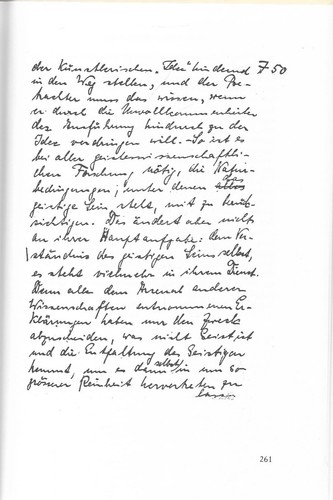 der künstlerischen „Idee" hindernd 750
in den Weg stellen, und der Be-
trachter muss das wissen, wenn
er durch die Unvollkommenheiten
der Ausführung hindurch zu der
Idee vordringen will. – So ist es
bei aller geisteswissenschaftli-
chen Forschung nötig, die Natur-
bedingungen, unter denen das
geistige Sein steht, mit zu berück-
sichtigen. Das ändert aber nichts
an ihrer Hauptaufgabe: dem Ver-
ständnis des geistigen Seins selbst,
es steht vielmehr in ihrem Dienst.
Denn alle dem Arsenal anderer
Wissenschaften entnommenen Er-
klärungen haben nur den Zweck
abzuscheiden, was nicht Geist ist
und die Entfaltung des Geistigen
hemmt, um es dann selbst in um so
grösserer Reinheit hervortreten zu
lassen
261